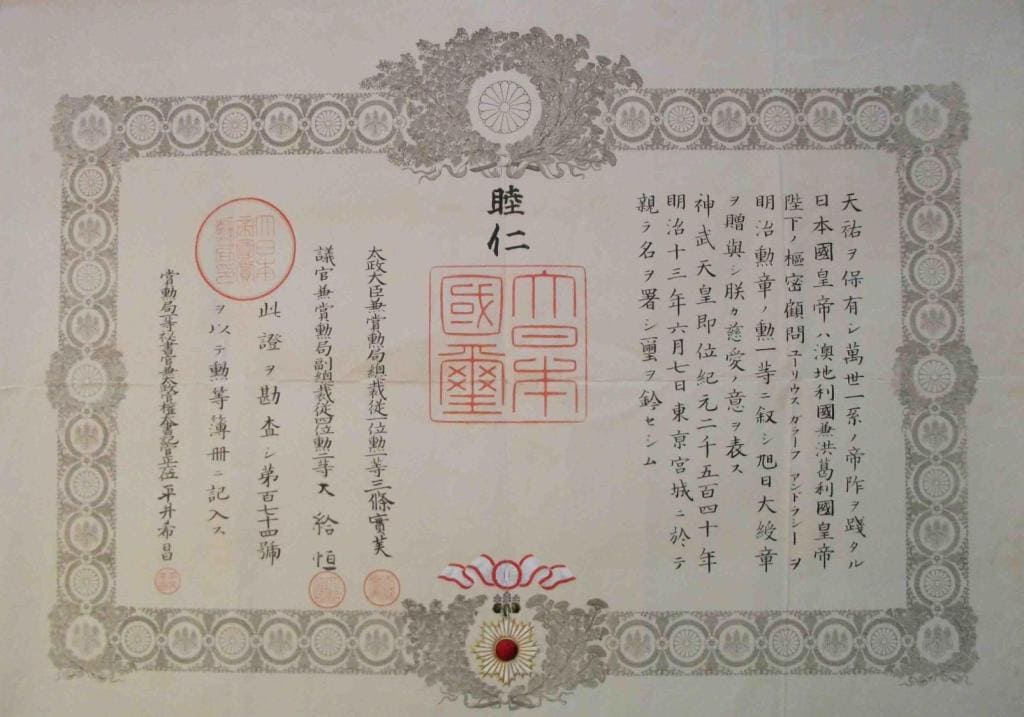 天祐ヲ保有シ萬世一系ノ帝阼ヲ踐タル
日本國皇帝ハ澳地利國兼洪葛利國皇帝
陛下ノ樞密顧問ユーリウス ガラーフ アンドラシーヲ
明治勲章ノ勲一等ニ叙シ旭日大綬章
ヲ贈與シ朕カ慈愛ノ意ヲ表ス
神武天皇即位紀元二千五百四十年
明治十三年六月七日東亰宮城ニ於テ
親ラ名ヲ署シ璽ヲ鈐セシム
睦仁
大日本
國璽
太政大臣兼賞勲局總裁從一位勲一等三條實美
議官兼賞勲局副總裁從四位勲二等大給恒
此證ヲ勘査シ第百七十四號
ヲ以テ勲等簿册ニ記入ス
大日本
賞勲局
平井希昌